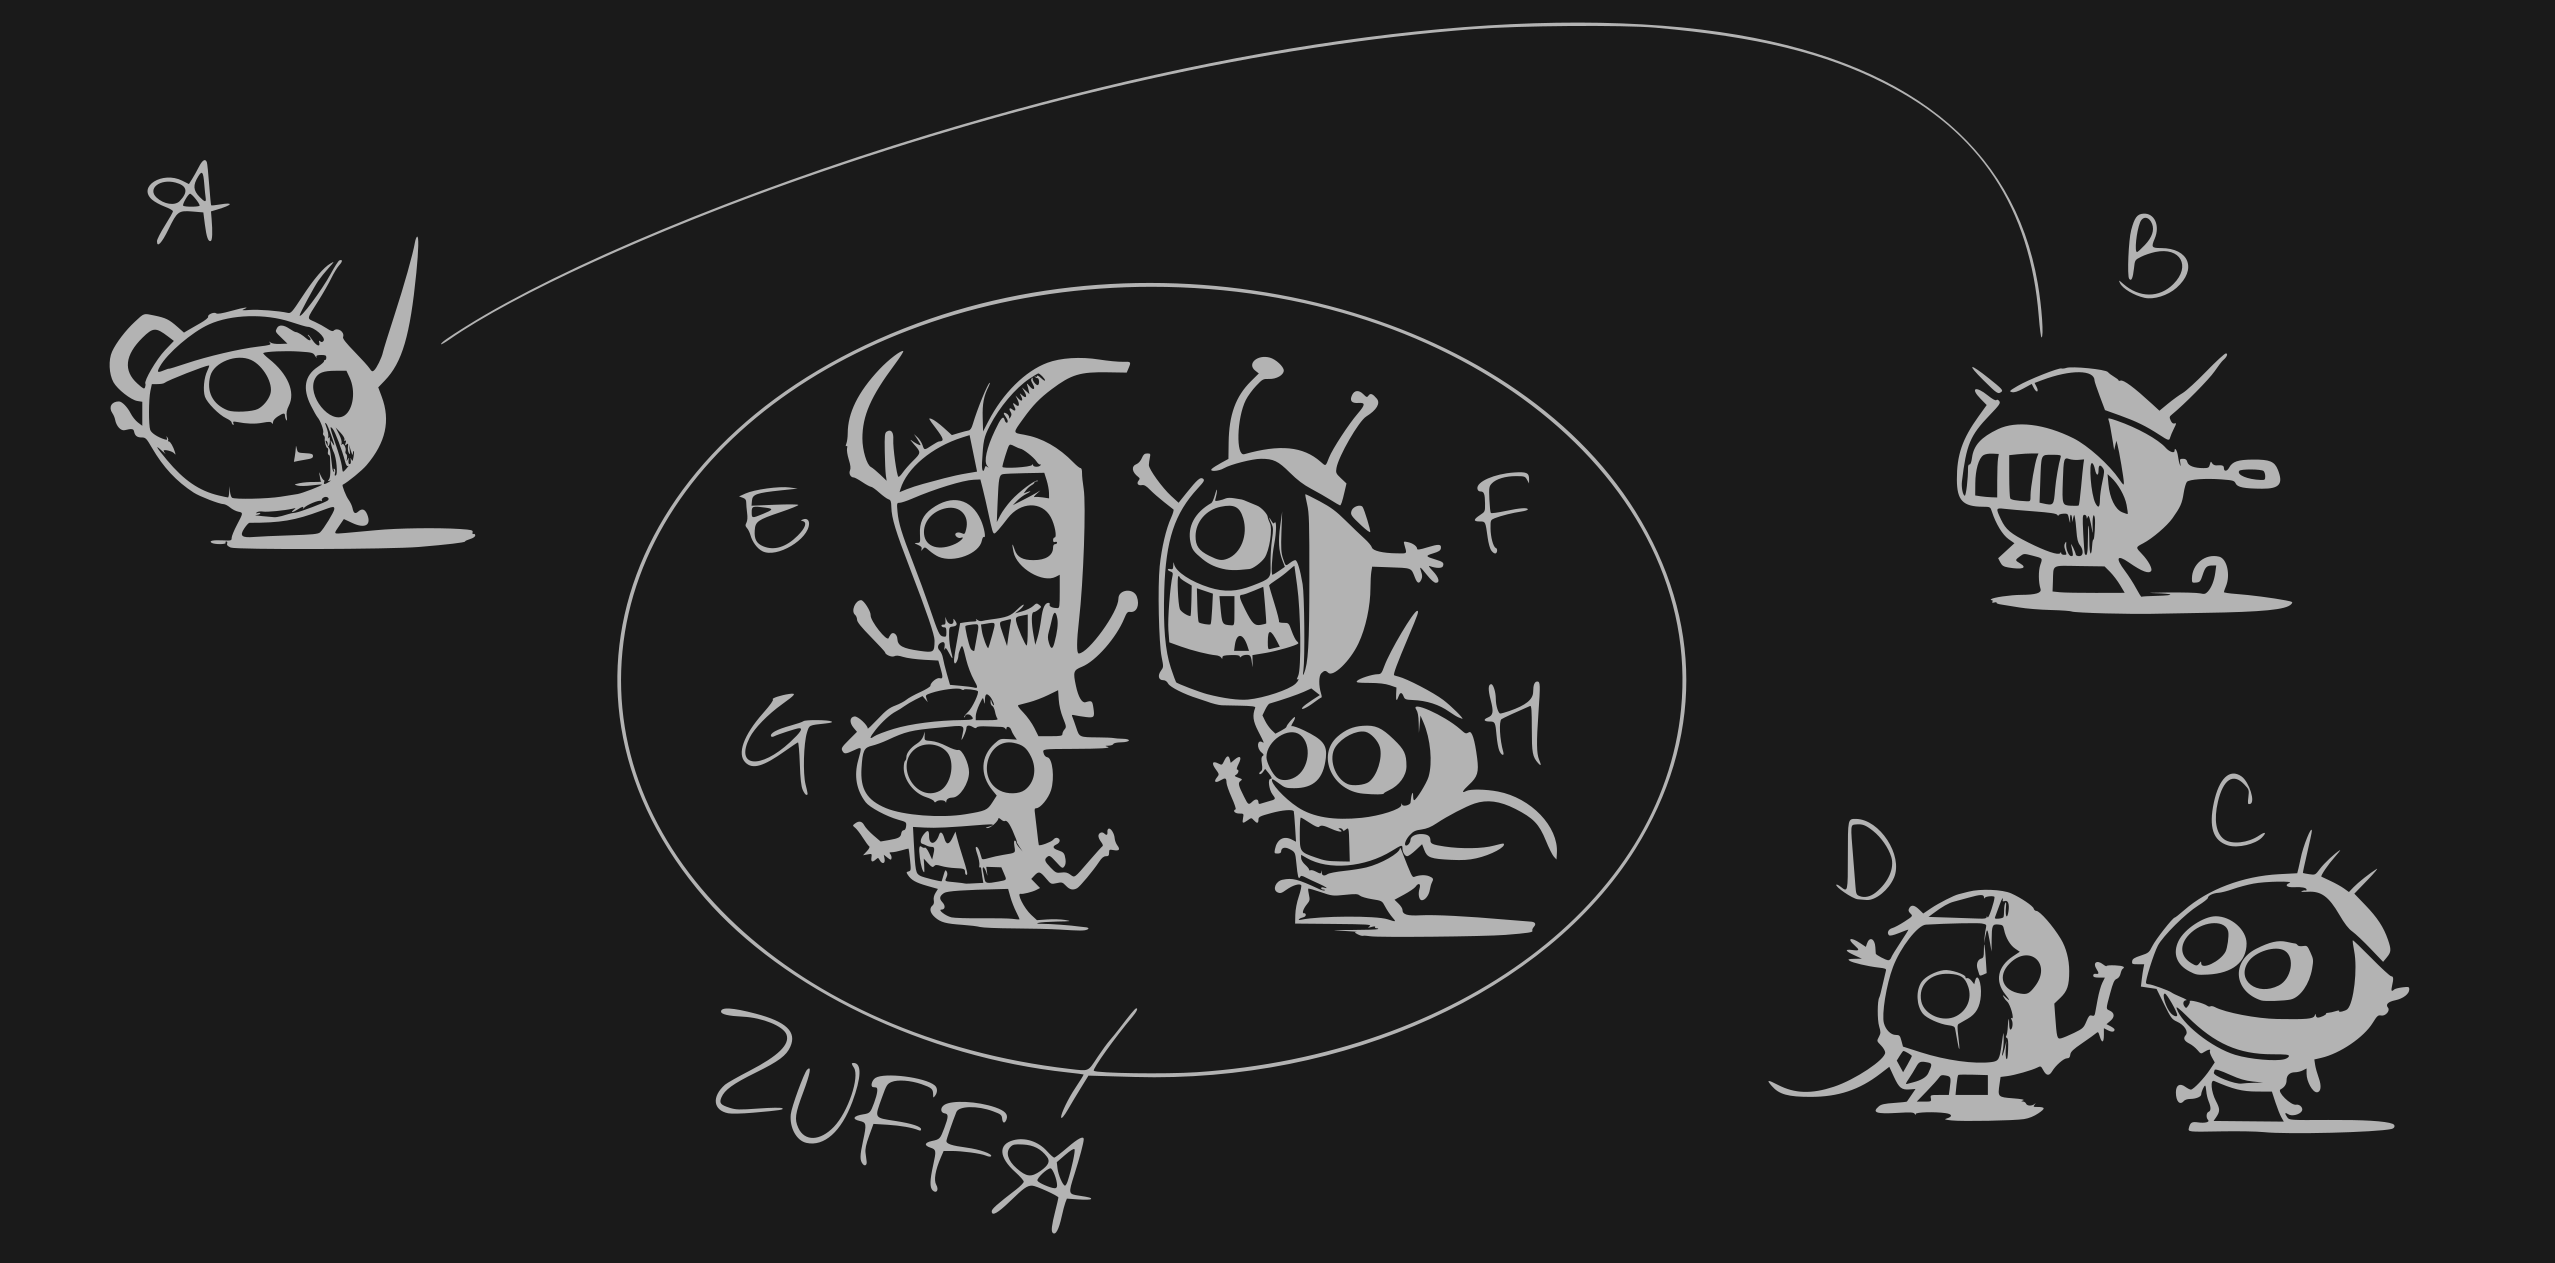 A
B
E
F
G
H
C
D
ZUFFA